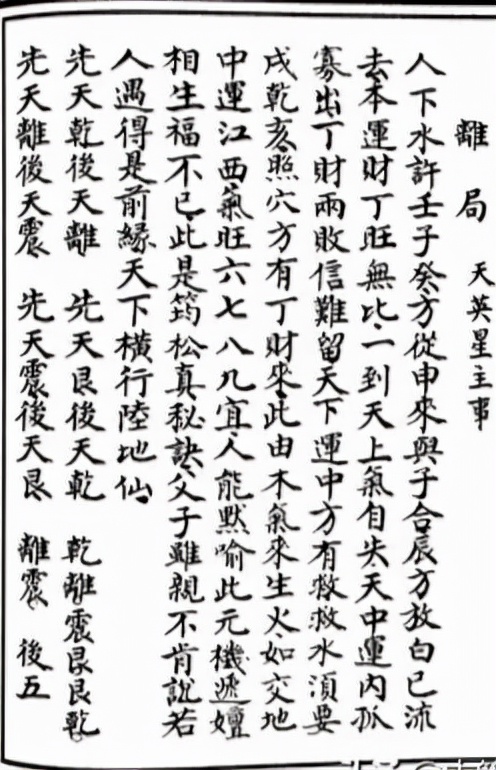 離局 天英星主事
人下水許壬子癸方從申來與子合辰方放白已流
去本運財丁旺無比、一到天上氣自失天中運內孤
寡出丁財兩敗信難留天下運中方有救救水須要
戌乾亥、照穴方有丁財來、此由木氣來生火、如交地
中運江西氣旺六七八九宜、人能默喻此元機遞嬗
相生福不已、此是筠松真秘訣、父子雖親不肯說若
人遇得是前緣天下橫行陸地仙、
先天乾後天離 先天艮後天乾 乾離震艮艮乾
先天離後天震 先天震後天艮 離震 後五